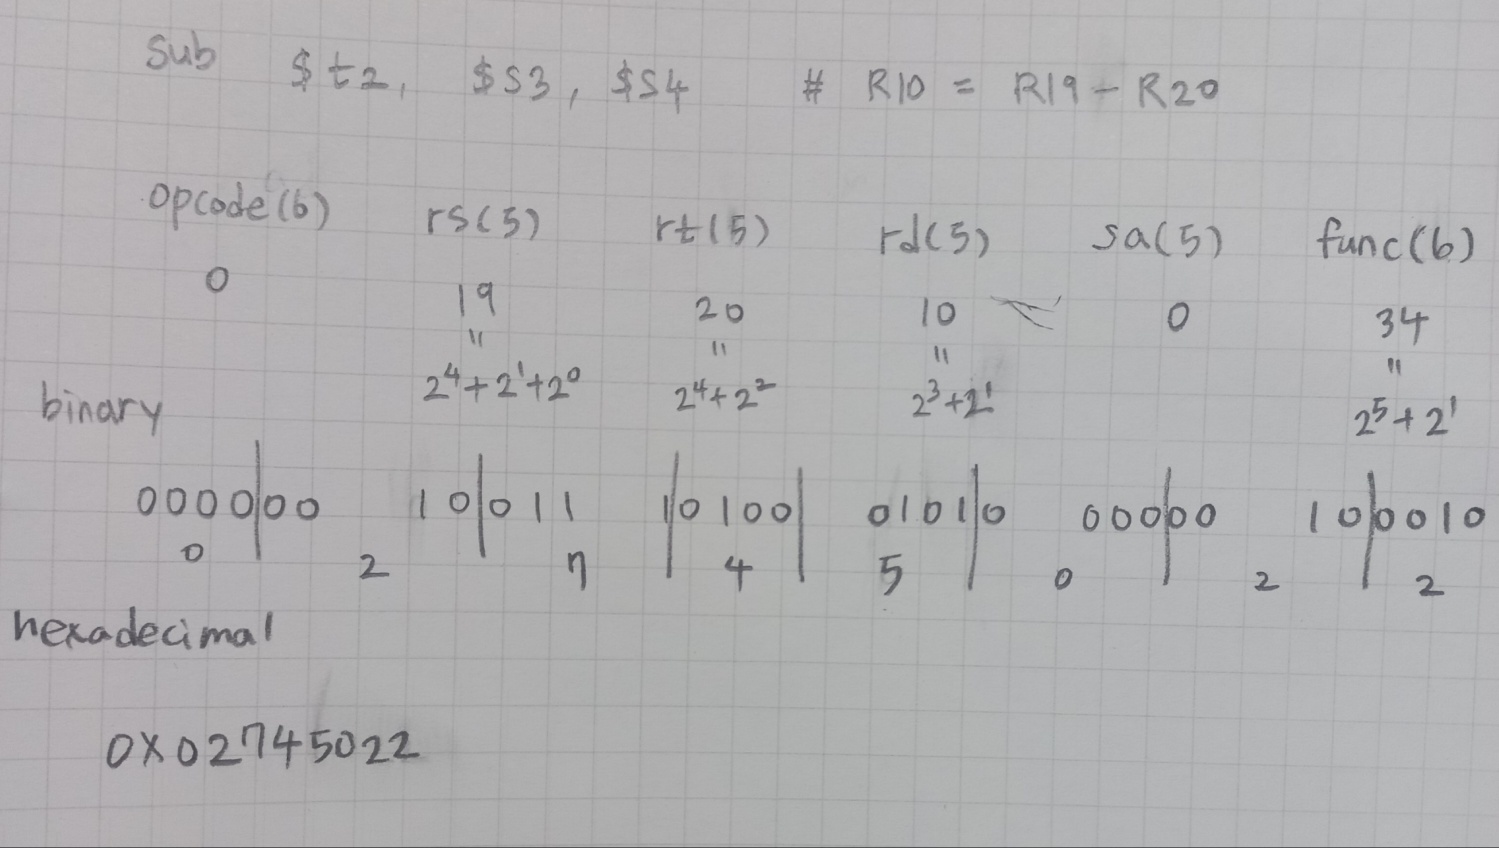 sub $t2, $s3, $s4 # R10 = R19 - R20
opcode(6) rs(5) rt(5) rd(5) sa(5) func(6)
0 19 20 10 0 34
" " " "
2^4+2^1+2^0 2^4+2^2 2^3+2^1 2^5+2^1
binary
0000|00 10|011 1|0100| 0101|0 000|00 10|0010
0 2 7 4 5 0 2 2
hexadecimal
0x02745022